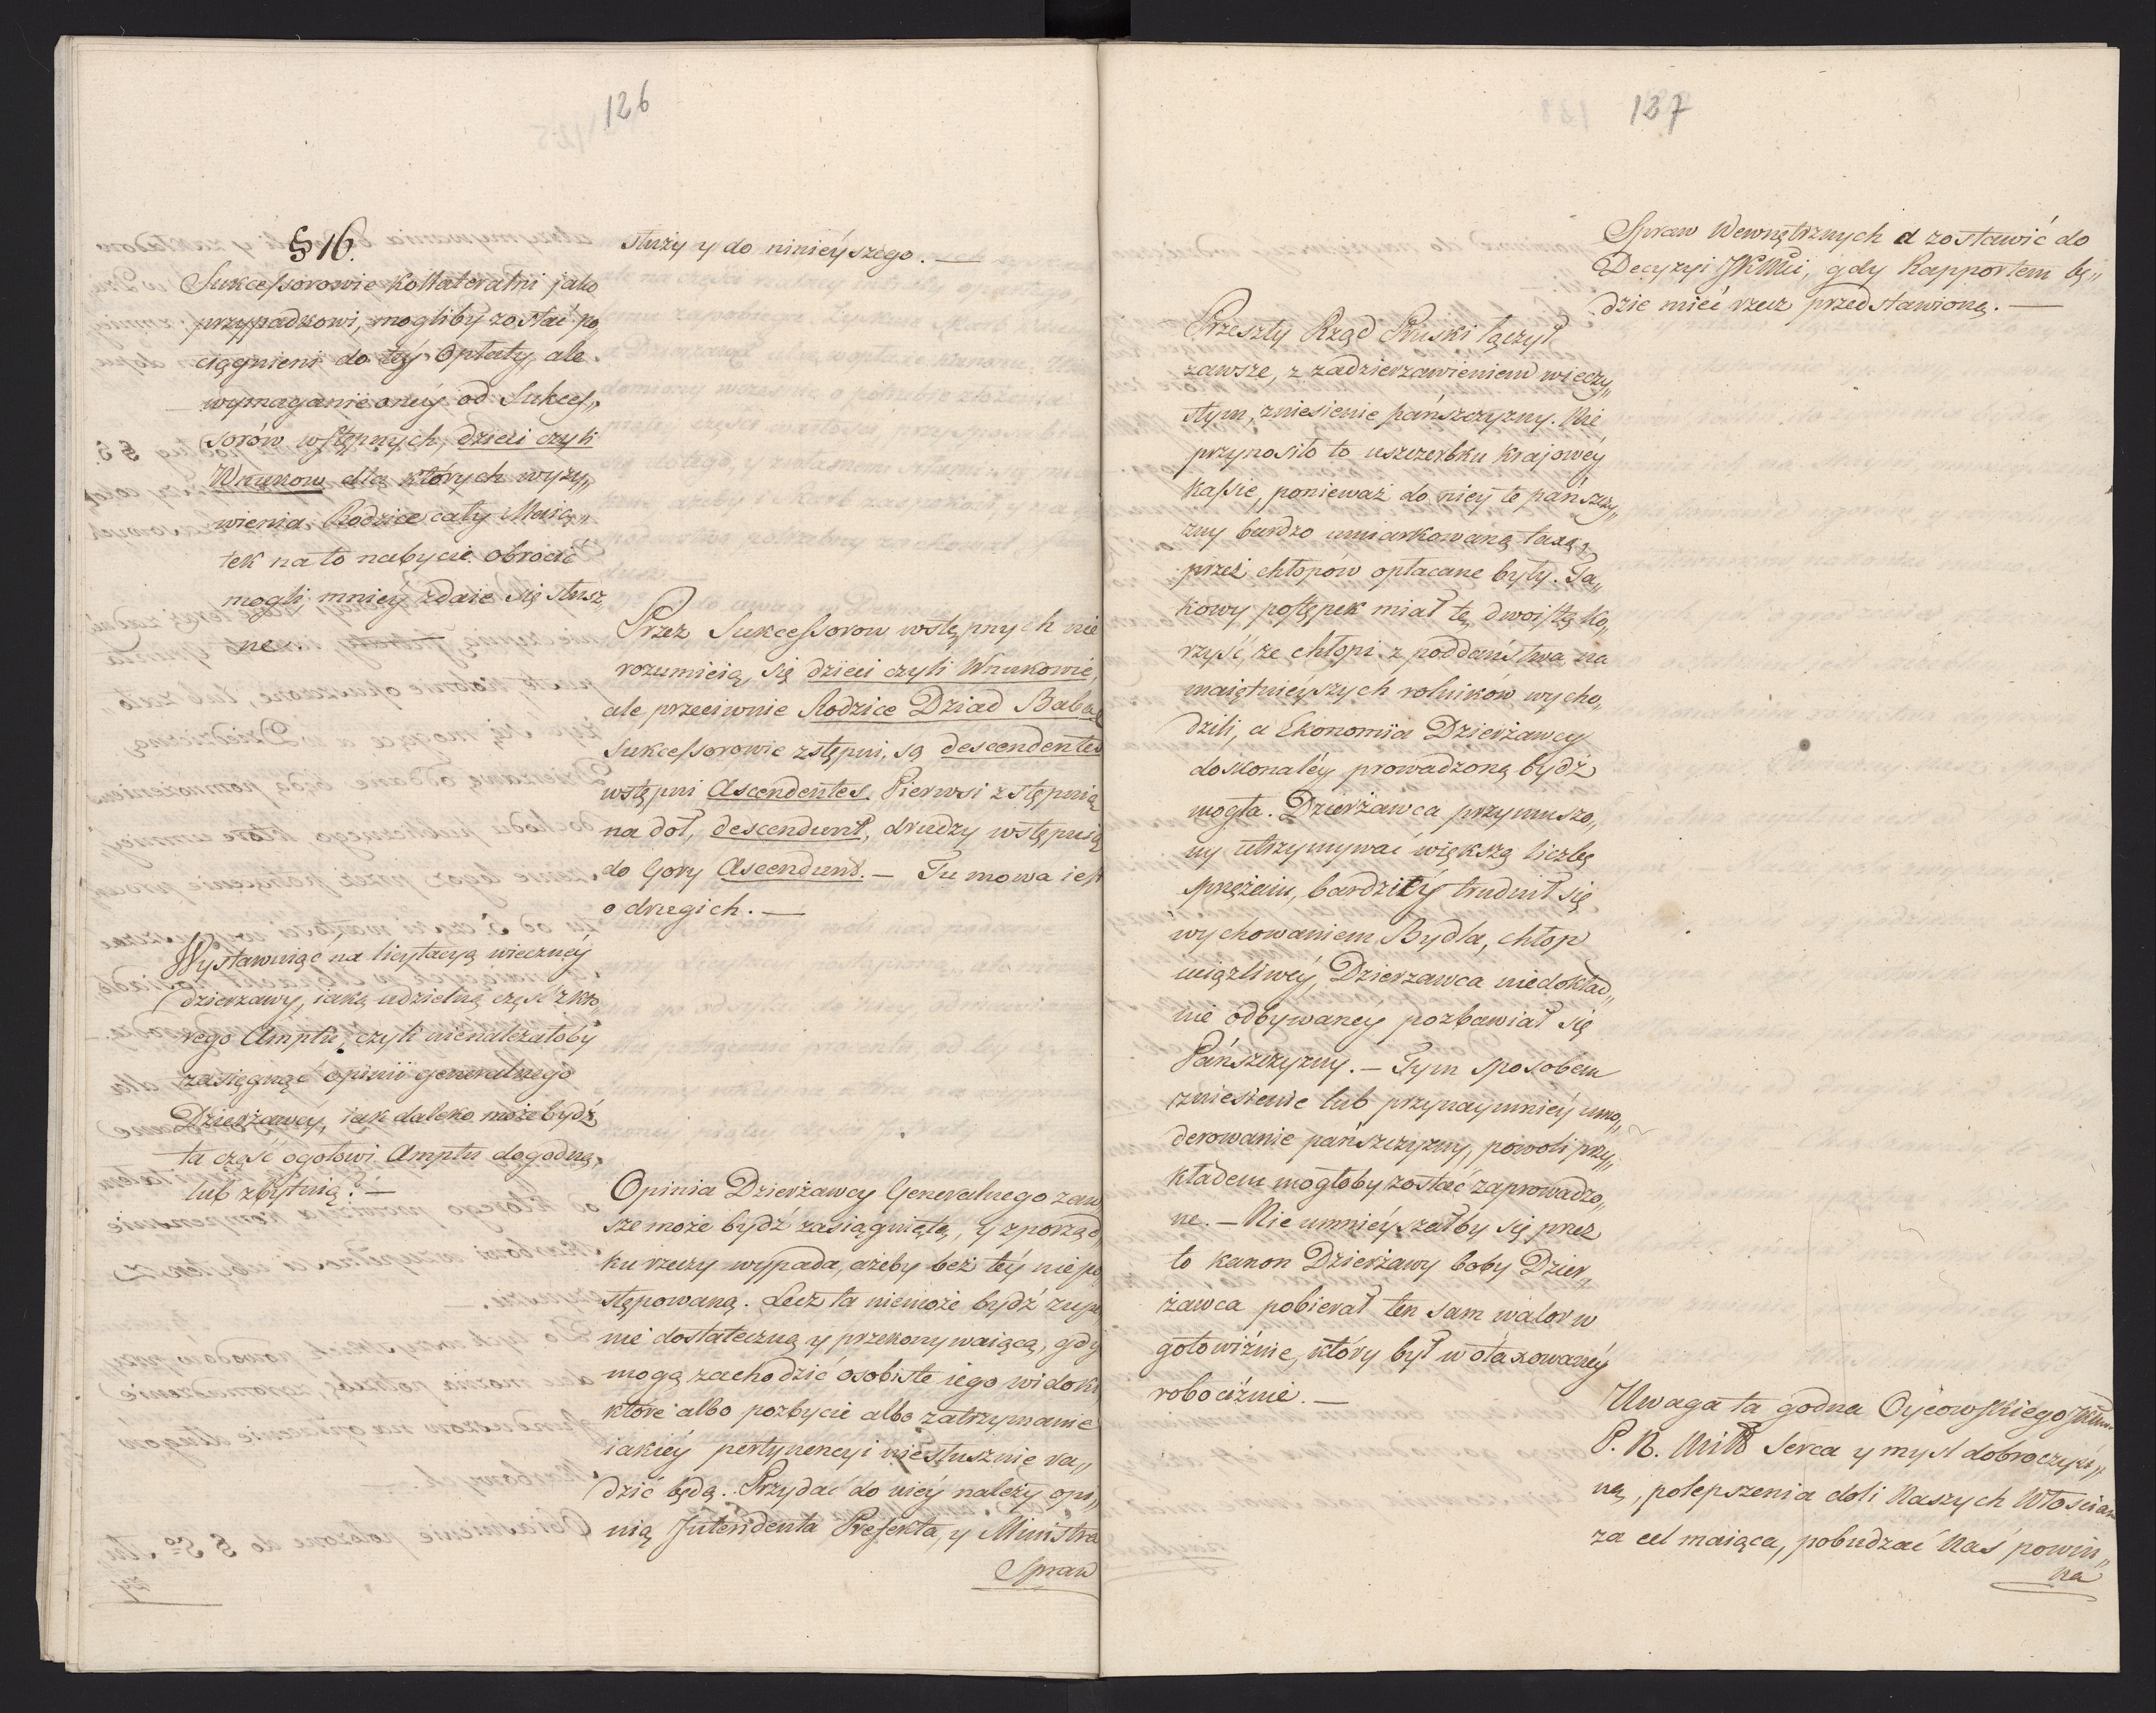 126
§ 16.
Sukcessorowie Kollateralni jako
przypadkowi, mogliby zostać po„
ciągnieni do téy Opłaty, ale
wymaganie onéy od Sukces„
sorów wstępnych, dzieci czyli
Wnukow dla których wyży„
wienia Rodzice cały Maią„
tek na to nabycie obrocić
mogli, mniéy zdaie się słusz„
ne. —
Wystawuiąć na licytacyą wiecznéy
dzierzawy, iaką udzielną część któ„
rego Amptu, czyli nienależałoby
zasięgnąć opinii generalnego
Dzierżawcy, iak daleko może bydź
ta część ogołowi Amptu dogodną,
lub zbytnią? —
służy y do ninieyszego. —
Przez Sukcessorow wstępnych nie
rozumieią się dzieci czyli Wnukowie,
ale przeciwnie Rodzice Dziad Baba
Sukcessorowie zstępni, są descendentes
wstępni Ascendentes. Pierwsi zstępuią
na doł, descendunt, drudzy wstępuią
do Gory Ascendunt. — Tu mowa iest
o drugich. —
Opinia Dzierżawcy Generalnego zaw
sze może bydź zasiągniętą, y z porząd„
ku rzeczy wypada, ażeby bez téy nie po
stępowaną. Lecz ta niemoże bydź zupe
nie dostateczną y przekonywaiącą, gdy
mogą zachodzić osobiste iego widoki
które albo pozbycie albo zatrzymanie
iakiéy pertynencyi niesłusznie ra„
dzić będą. Przydać do niéy należy opi„
nią Intendenta Prefekta, y Ministra
Spraw
127
Przeszły Rząd Pruski łączył
zawsze, z zadzierzawieniem wieczy„
stym, zniesienie pańszczyzny. Nie
przynosiło to uszczerbku krajowey
kassie, ponieważ do niéy te pańszczy„
zny bardzo umiarkowaną taxą,
przez chłopów opłacane były. Ta„
kowy postępek miał tę dwoistą ko„
rzyść, że chłopi z poddaństwa na
maiętnieyszych rolników wycho„
dzili, a Ekonomiia Dzierżawcy
doskonaléy prowadzoną bydź
mogła. Dzierżawca przymuszo„
ny utrzymywać większą liczbę
sprzężaiu, bardziéy trudnił się
wychowaniem Bydła, chłop
uciążliwéy, Dzierzawca niedokład„
nie odbywaney pozbawiał się
Pańszczyzny. — Tym sposobem
zniesienie lub przynaymniéy umo„
derowanie pańszczyzny, powoli przy„
kładem mogłoby zostać zaprowadzo„
ne. — Nie umnieyszałby się przez
to kanon Dzierżawy boby Dzier„
żawca pobierał ten sam walor w
gotowiźnie, który był w otaxowanéy
robociźnie. —
Spraw Wewnętrznych a zostawić do
Decyzyi JKMci, gdy Rapportem bę„
dzie mieć rzecz przedstawioną. —
Uwaga ta godna Oycowskiego
P. N. serca y mysl dobroczyn„
ną, polepszenia doli Naszych Włościan
za cel maiąca, pobudzać Naś powin„
na